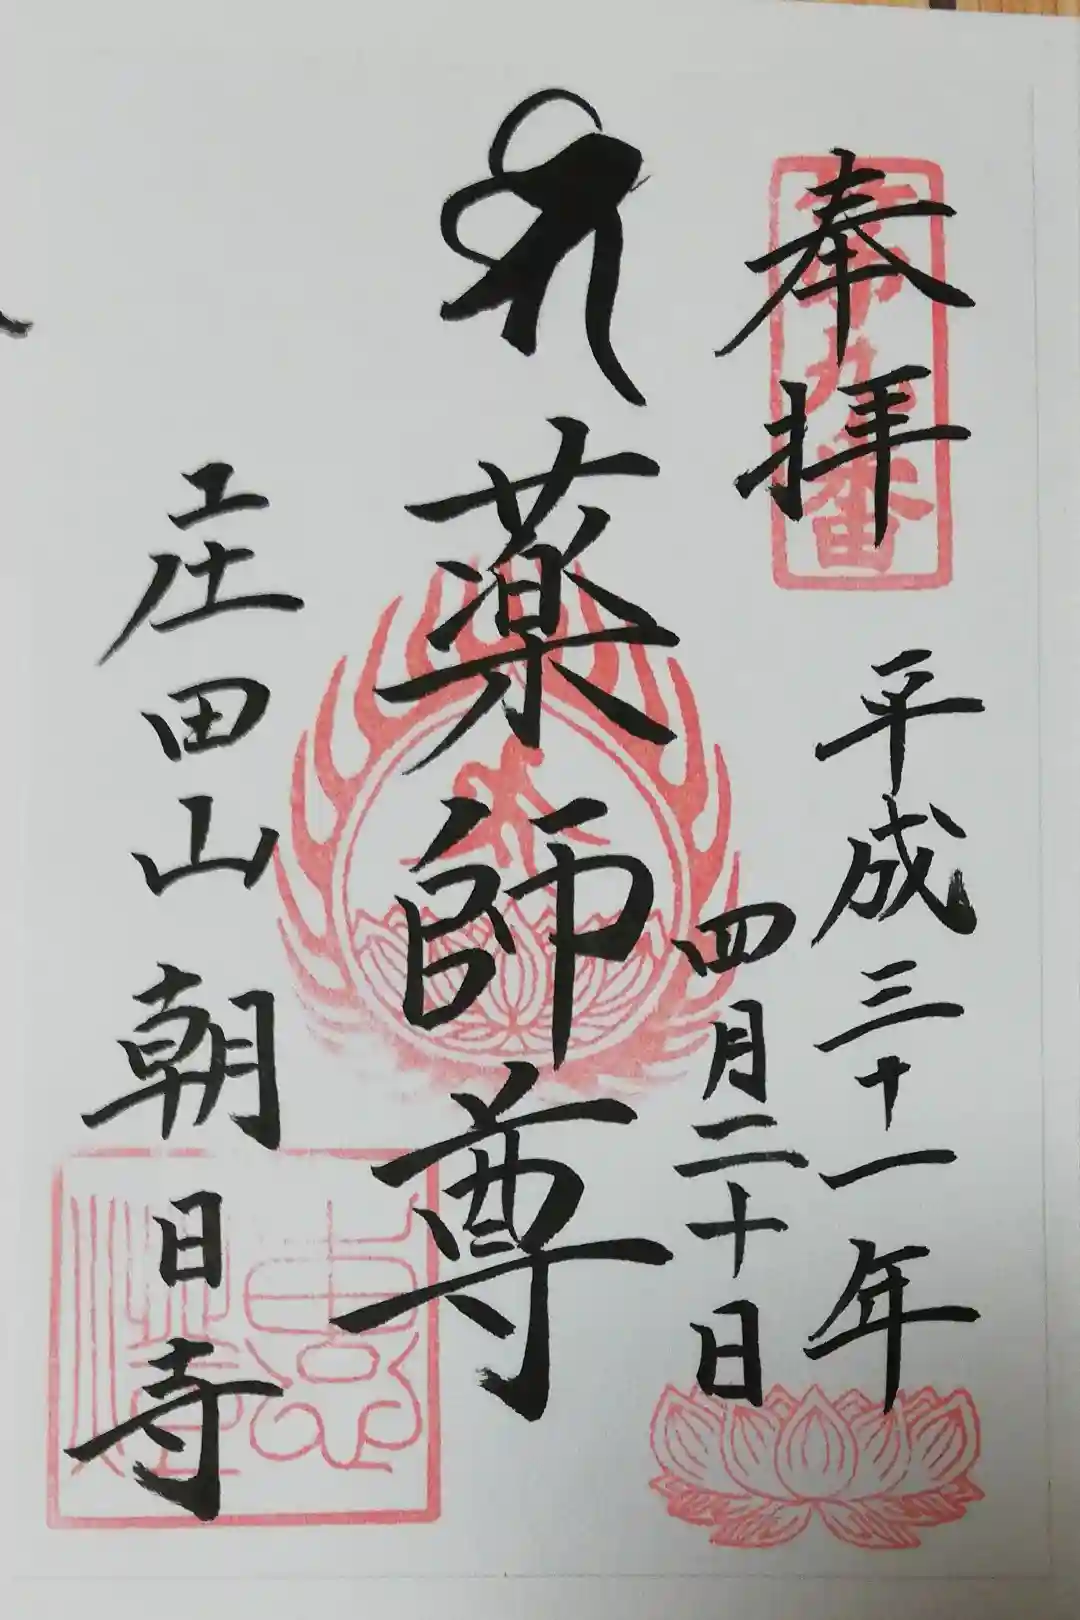 奉拝
平成三十一年
四月二十日
薬師尊
庄田山朝日寺